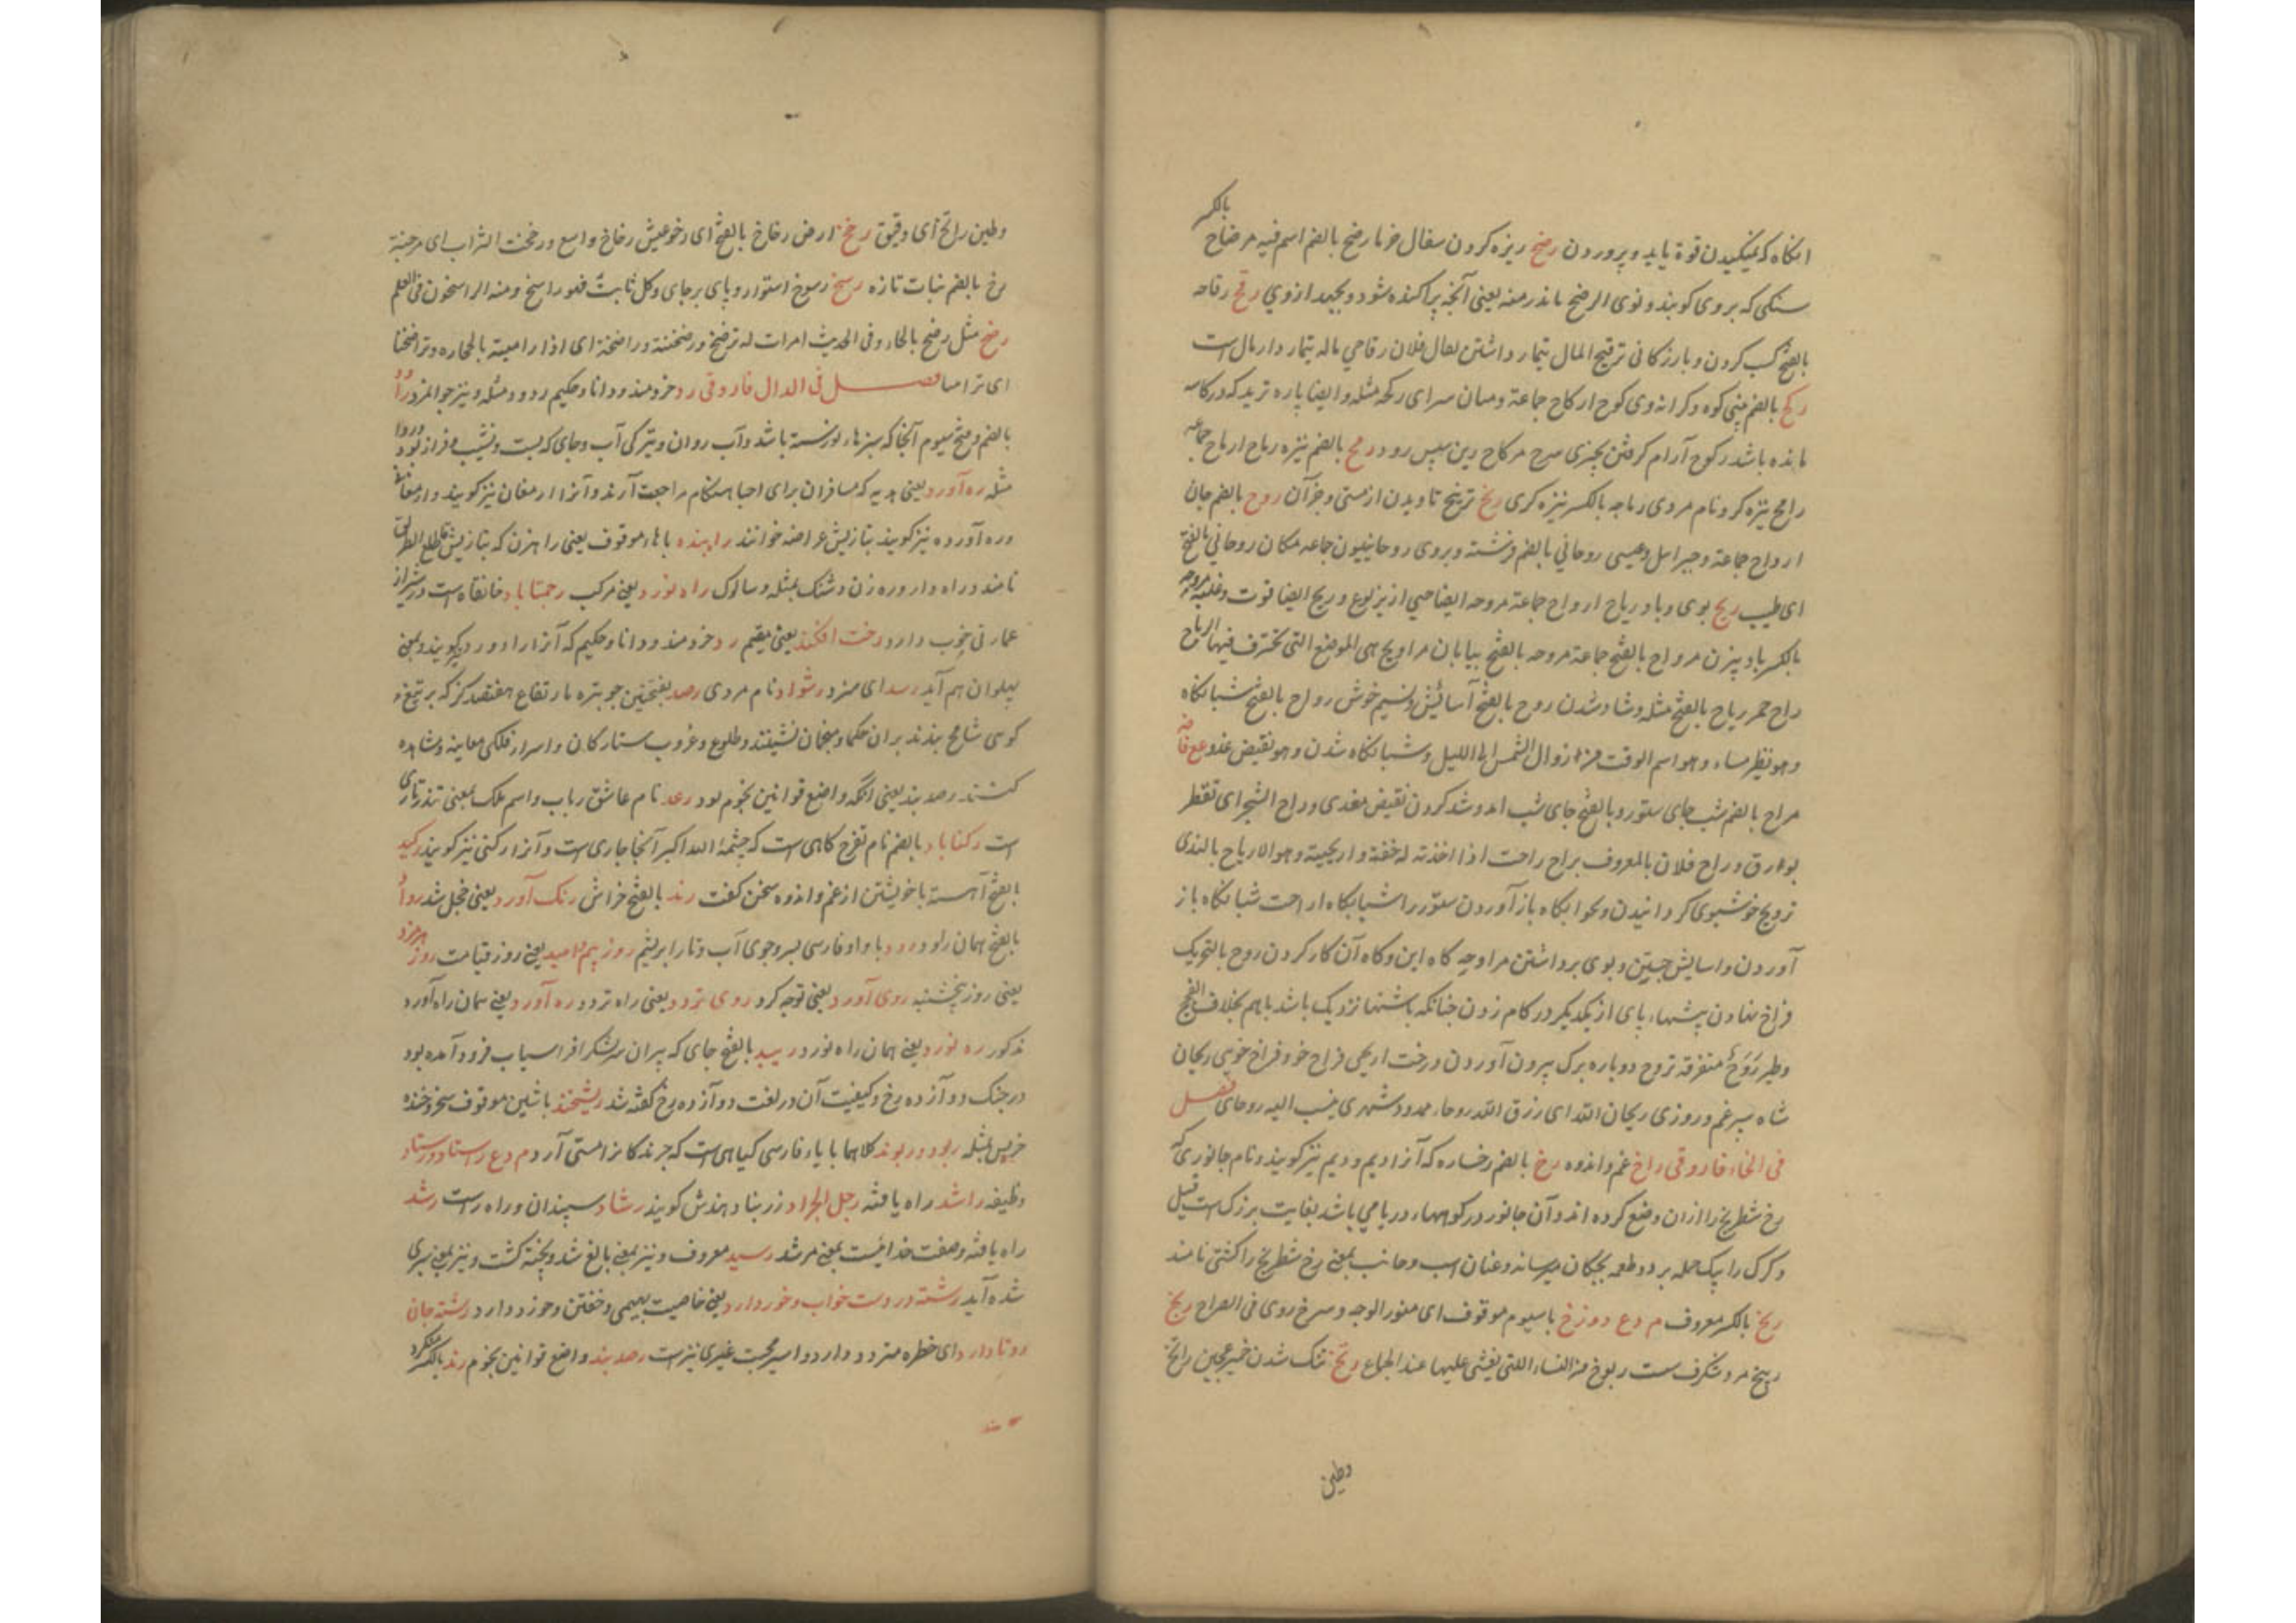 بالکسر
انگاه که بمکیدن قوة یابد و پروردن رضح ریزه کردن سفال خرما رضح بالضم اسم فیه مرضاح
سنکی که بر وی کوبند و نوی الرضح ماندر منه یعنی آنچه پراکنده شود و بجهد از وی رقح رقاحه
بالفتح کسب کردن و بازرکانی ترقیح المال تیمار داشتن یقال فلان رقاحی ماله تیمار دار مال است
رکح بالضم بینی کوه و کرانه وی کوح ارکاح جماعة و میان سرای رکحه مثله و ایضا پاره ترید که در کاسه
مانده باشد رکوح آرام کرفتن بچیزی سرج مرکاح زین سپس رو رمح بالضم نیزه رماح ارماح جماعه
رامح نیزه کر و نام مردی رماحه بالکسر نیزه کری رنح ترنح تاویدن از مستی و جز آن روح بالضم جان
ارواح جماعة و جبرائیل و عیسی روحانی بالضم فرشته و پری روحانییون جماعه مکان روحانی بالفتح
ای طیب ریح بوی و باد ریاح ارواح جماعة مروحه ایضا و ریح ایضا قوت و غلبه مروحه
بالکسر باد بیزن مرواح بالفتح جماعة مروحه بالفتح بیابان مراویح هی الموضع التی تخترق فیها الریاح
راح خمر ریاح بالفتح مثله و شاد شدن روح بالفتح آسایش و نسیم خوش رواح بالفتح شبانگاه
و هو نظیر مساء و هو اسم الوقت من زوال الشمس الی اللیل و شبانگاه شدن و هو نقیض غدو
مراح بالضم شب جای ستور و بالفتح جای شب آمد و شد کردن نقیض مغدی و راح الشجر ای تفطر
بورق و راح فلان بالمعروف یراح راحت اذا اخذته له خفة و اریحیة و هو الاریاح بالندی
ترویح خوشبوی کردانیدن و بخوابگاه باز آوردن ستور را شبانگاه اراحت شبانگاه باز
آوردن و اسایش جستن و بوی برداشتن مراوحه گاه این و گاه آن کار کردن روح بالتحریک
فراخ نهادن پیشهاء پای از یکدیگر در کام زدن چنانکه پاشنها نزدیک باشد باهم بخلاف الفحج
و طیر رَوَحٌ متفرقة تروح دوباره برک بیرون آوردن درخت اریحی فراخ خو و فراخ خویی ریحان
شاه سپرغم و روزی ریحان الله ای رزق الله روحاء ممدود شهری ینسب الیه روحای فصل
فی الخاء فاروقی راخ غم و اندوه رخ بالضم رخساره که آنرا دیم و دیم نیز کویند و نام جانوری که
رخ شطرنج را از ان وضع کرده اند و آن جانور در کوهها دریایی باشد بغایت بزرک است فیل
و کرک را بیک حمله برد و طعمه بچکان میرساند و عنان اسب و جانب بمعنی رخ شطرنج را کشتی نامند
ریخ بالکسر معروف م دع دوزخ با سیوم موقوف ای منور الوجه و سرخ روی فی الصراح ربخ
ربیخ مرد شکرف سست ربوخ من النساء اللتی یغشی علیها عند الجماع رتخ تنک شدن خمیر عجین راتخ
وطین
وطین راتخ ای رقیق رخخ ارض رخاخ بالفتح ای رخو عیش رخاخ واسع و رخخت الشراب ای مزجته
رخ بالضم نبات تازه رسخ رسوخ استوار و پای برجای و کل ثابت فهو راسخ و منه الراسخون فی العلم
رضخ مثل رضح بالحاء و فی الحدیث امرات له ترضخ و رضخته و راضخته ای اذا رامیته بالحجاره و تراضخنا
ای ترامینا فصل فی الدال فاروقی رد خردمند و دانا و حکیم ردود مثله و نیز جوانمرد
بالضم و فتح سیوم آنجا که سبزهاء نورسته باشد و آب روان و تیرکی آب و جای که پست و نشیب و فراز بود
مثله ره آورد یعنی هدیه که مسافران برای احبا هنگام مراجعت آرند و آنرا ارمغان نیز کویند و ارمغانی
و ره آورده نیز کویند بتازیش عراضه خوانند راه بند با هاء موقوف یعنی راهزن که بتازیش قاطع الطریق
نامند و راه دار و ره زن و شنک بمثله و سالوک راه نورد یعنی مرکب رحمتاباد خانقاه است در شیراز
عمارتی خوب دارد رخت افکند یعنی مقیم رد خردمند و دانا و حکیم که آنرا راد و رد نیز کویند و بمعنی
پهلوان هم آید رسد ای میرد رشواد نام مردی رصد بفتحتین چوبتره بارتفاع هفتصد کز که بر تیغ
کوهی شامخ بندند بر ان حکما و منجمان نشینند و طلوع و غروب ستارکان و اسرار فلکی معاینه و مشاهده
کنند رصد بند یعنی آنکه واضع قوانین نجوم بود رعد نام عاشق رباب و اسم ملک بمعنی تندر تازی
است رکناباد بالضم نام تفرج کاهی است که چشمهٔ الله اکبر آنجا جاری است و آنرا رکنی نیز کویند رکید
بالفتح آهسته با خویشتن از غم و اندوه سخن کفت رند بالفتح خراش رنک آورد یعنی خجل شد
بالفتح همان راود رود با واو فارسی پسر و جوی آب و تار ابریشم روز بیم و امید یعنی روز قیامت روز هرمزد
یعنی روز پنجشنبه روی آورد یعنی توجه کرد روی تردد یعنی راه تردد ره آورد یعنی همان راه آورد
مذکور ره نورد یعنی همان راه نورد ریبد بالفتح جای که پیران سرلشکر افراسیاب فرود آمده بود
در جنک دوازده رخ و کیفیت آن در لغت دوازده رخ کفته شد ریشخند با شین موقوف سخر و خنده
خریش بمثله ربود و ربوند کلاهما با یاء فارسی کیاهی است که چرندکانرا مستی آرد م دع راستاد و رستاد
وظیفه راشد راه یافته رجل الجراد زرنباد هندش کویند رشاد سپندان و راه راست رشد
راه یافته و صفت خدائیست بمعنی مرشد رسید معروف و نیز بمعنی بالغ شد و پخته کشت و نیز بمعنی سپری
شده آید رشته در دست خواب و خور دارد یعنی خاصیت بهیمی و خفتن و خوردن دارد رشته جانی
دو تا دارد ای خطره متردد دارد و اسیر محبت غیری نیز است رصد بند واضع قوانین نجوم رند بالکسر